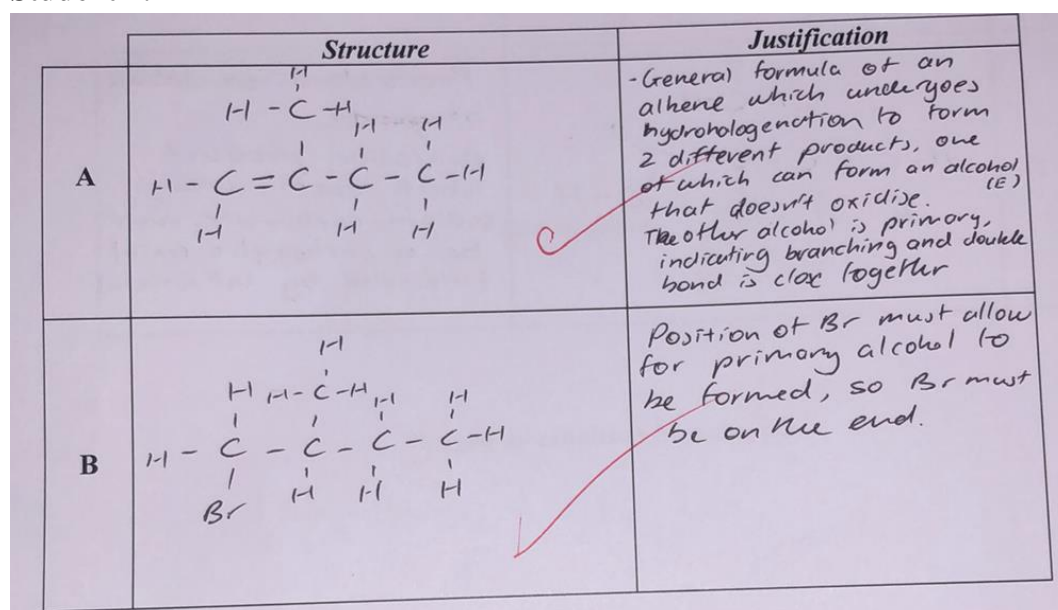 Structure
Justification
A
H
H - C - H
H H
H - C = C - C - C - H
H H H
- General formula of an
alkene which undergoes
hydrohalogenation to form
2 different products, one
of which can form an alcohol
(E)
that doesn't oxidise.
The other alcohol is primary,
indicating branching and double
bond is close together
B
H
H H - C - H H H
H - C - C - C - C - H
Br H H H
Position of Br must allow
for primary alcohol to
be formed, so Br must
be on the end.